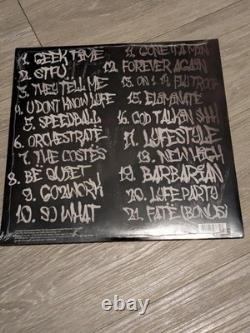 1. GEEK TIME
2. STFU
3. THEY TELL ME
4. U DONT KNOW LYFE
5. SPEEDBALL
6. ORCHESTRATË
7. THE COSTËS
8. BE QUIET
9. GO2WORK
10. SO WHAT
11. GONE 4 A MIN
12. FOREVER AGAIN
13. ON 1
15. ELIMINATE
16. GOD TALKIN SHHH
17. LYFESTYLE
18. NEW HIGH
19. BARBARIAN
20. LYFE PARTY
21. FATE (BONUS)